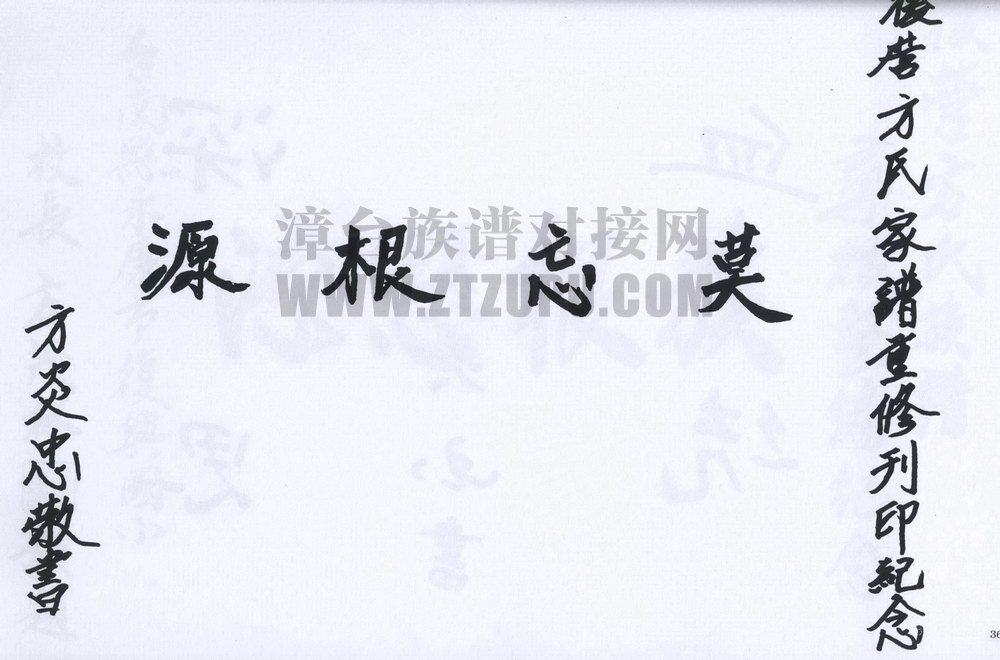 後营方氏家譜重修刊印紀念
莫忘根源
方炎忠敬書
漳台族谱对接网
WWW.ZTZUPU.COM
36